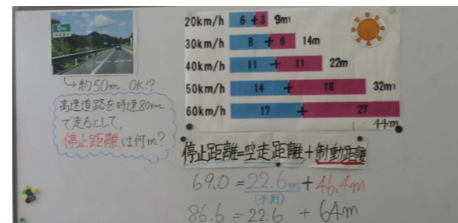 0m
→約50m OK!?
高速道路を時速80km
で走るとして、
停止距離は何m?
20km/h 6+3 9m
30km/h 8+6 14m
40km/h 11+11 22m
50km/h 14+18 32m
60km/h 17+27
44m
停止距離=空走距離+制動距離
69.0=22.6m+46.4m
(予測)
86.6=22.6+64m